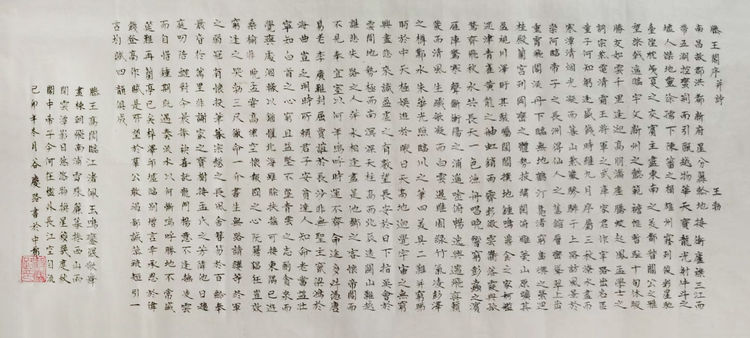 滕王閣序并詩　王勃
南昌故郡洪都新府星分翼軫地接衡廬襟三江而
帶五湖控蠻荊而引甌越物華天寶龍光射牛斗之
墟人傑地靈徐孺下陳蕃之榻雄州霧列俊彩星馳
臺隍枕夷夏之交賓主盡東南之美都督閻公之雅
望棨戟遙臨宇文新州之懿範襜帷暫駐十旬休暇
勝友如雲千里逢迎高朋滿座騰蛟起鳳孟學士之
詞宗紫電清霜王將軍之武庫家君作宰路出名區
童子何知躬逢盛餞時維九月序屬三秋潦水盡而
寒潭清煙光凝而暮山紫儼驂騑於上路訪風景於
崇阿臨帝子之長洲得仙人之舊館層巒聳翠上出
重霄飛閣流丹下臨無地鶴汀鳧渚窮島嶼之縈迴
桂殿蘭宮列岡巒之體勢披繡闥俯雕甍山原曠其
盈視川澤盱其駭矚閭閻撲地鐘鳴鼎食之家舸艦
迷津青雀黃龍之舳虹銷雨霽彩徹雲衢落霞與孤
鶩齊飛秋水共長天一色漁舟唱晚響窮彭蠡之濱
雁陣驚寒聲斷衡陽之浦遙吟俯暢逸興遄飛爽籟
發而清風生纖歌凝而白雲遏睢園綠竹氣凌彭澤
之樽鄴水朱華光照臨川之筆四美具二難并窮睇
眄於中天極娛遊於暇日天高地迥覺宇宙之無窮
興盡悲來識盈虛之有數望長安於日下指吳會於
雲間地勢極而南溟深天柱高而北辰遠關山難越
誰悲失路之人萍水相逢盡是他鄉之客懷帝閽而
不見奉宣室以何年嗚呼時運不齊命途多舛馮唐
易老李廣難封屈賈誼於長沙非無聖主竄梁鴻於
海曲豈乏明時所賴君子安貧達人知命老當益壯
寧知白首之心窮且益堅不墜青雲之志酌貪泉而
覺爽處涸轍以猶懽北海雖賒扶搖可接東隅已逝
桑榆非晚孟嘗高潔空懷報國之心阮籍猖狂豈效
窮途之哭勃三尺微命一介書生無路請纓等終軍
之弱冠有懷投筆慕宗慤之長風舍簪笏於百齡奉
晨昏於萬里非謝家之寶樹接孟氏之芳鄰他日趨
庭叨陪鯉對今晨捧袂喜託龍門楊意不逢撫凌雲
而自惜鍾期既遇奏流水以何慚嗚呼勝地不常盛
筵難再蘭亭已矣梓澤邱墟臨別贈言幸承恩於偉
餞登高作賦是所望於羣公敢竭鄙誠恭疏短引一
言均賦四韻俱成
滕王高閣臨江渚佩玉鳴鸞罷歌舞
畫棟朝飛南浦雲珠簾暮捲西山雨
閒雲潭影日悠悠物換星移幾度秋
閣中帝子今何在檻外長江空自流
己卯年冬月谷慶路書於中都